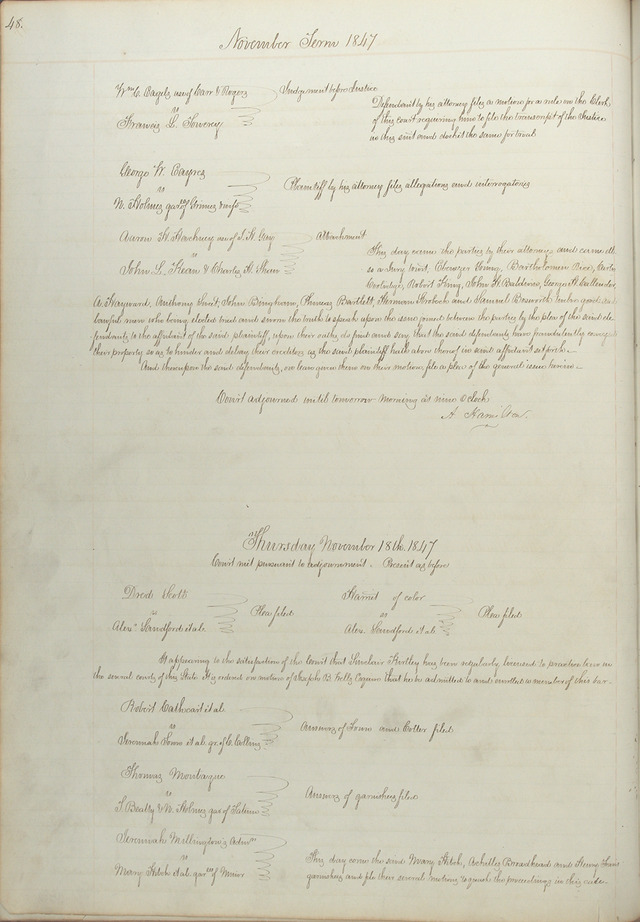 48.
November Term 1847
Wm C. Bagels use of Carr & Rogers
vs
Francis L.
Judgement before Justice
Defendant by his attorney files a motion for a rule on the Clerk
of this court requiring him to file the transcript of the Justice
in this suit and docket the same for trial
George W. Baynes
vs
W. Holmes gar of & Smith
Plaintiff by his attorney files allegations and interrogatories
Aaron W. use of S. H. Gay
vs
John L. & Charles H.
Attachment
This day come the parties by their attorneys and come also
a Jury to wit, Ebenezer Young, Bartholomew Rice,
Robert King, John H. Baldwin, George H. Callender,
A. Hayward, Anthony Smit, John Bingham, Phineas Bartlett, Herman and Samuel Bosworth twelve good and
lawful men who being elected tried and sworn the truth to speak upon the issue joined between the parties by the plea of the said de-
fendants to the affidavit of the said plaintiff, upon their oaths do find and say that the said defendants have fraudulently conveyed
their property so as to hinder and delay their creditors as the said plaintiff hath above thereof in said affidavit set forth.
And thereupon the said defendants, on leave given them on their motion file a plea of the general issue herein.
Court adjourned until tomorrow morning at nine o'clock
A. Hamilton
Thursday November 18th 1847
Court met pursuant to adjournment. Present as before
Dred Scott
vs
Alexr Sandford et al.
Pleas filed
Harriet of color
vs
Alex. Sandford et al
Pleas filed
It appearing to the satisfaction of the Court that Sinclair Kirtley has been regularly licensed to practice law in
the several courts of this State it is ordered on motion of Joseph B. Wells Esquire that he be admitted to and enrolled a member of this bar.
Robert Cathcart et al.
vs
Jeremiah Town et al. gr. of C. Collins
Answers of Town and Cotter filed
Thomas Montague
vs
J. Beatty & W. Holmes gar of
Answers of garnishees filed
Jeremiah Millington's Admr
vs
Mary Fitch et al. gar of
This day come the said Mary Fitch, Achilles Broadhead and Henry
garnishees and file their several motions to quash the proceedings in this suit.